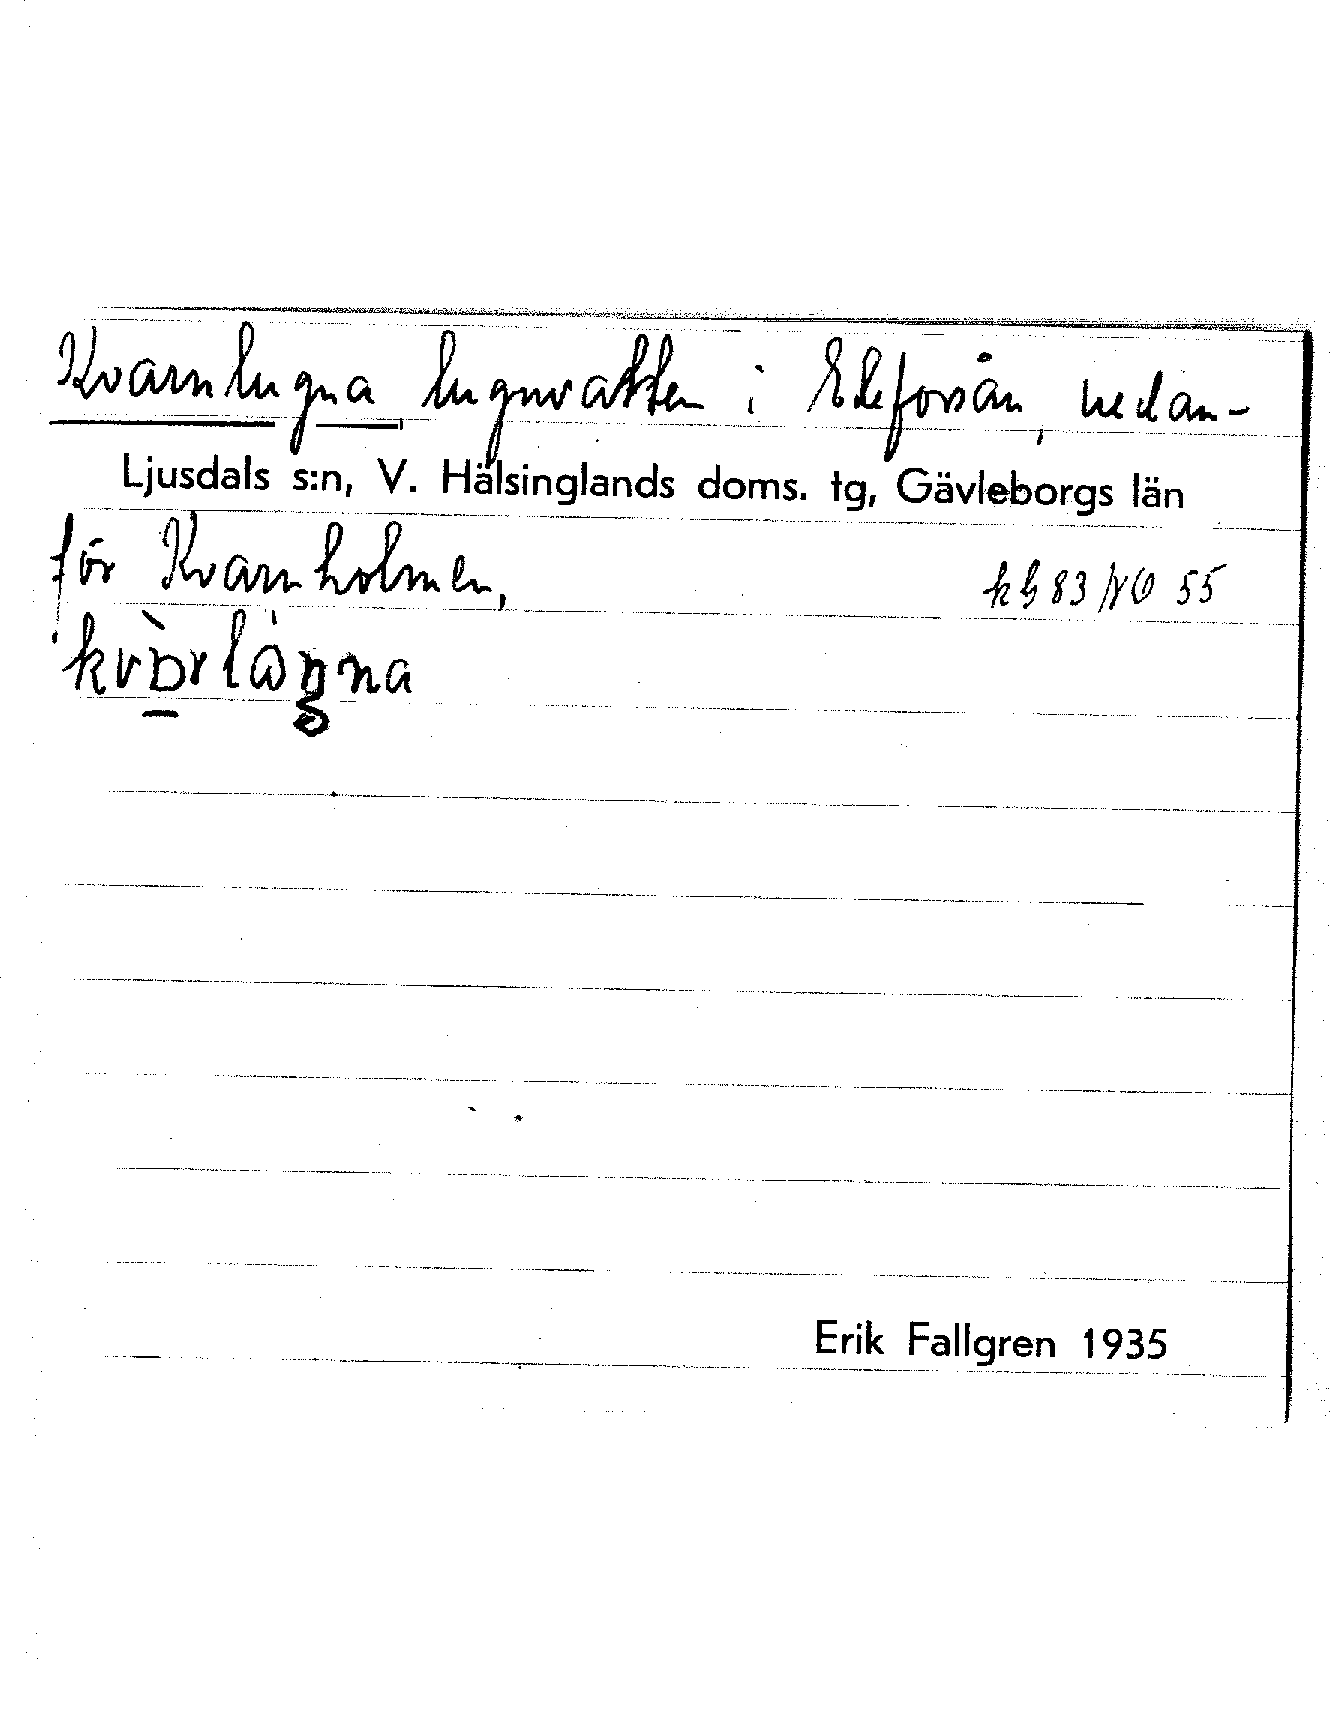 Kvarnlugna lugnvatten i Eleforsån, nedan-
Ljusdals s:n, V. Hälsinglands doms. tg, Gävleborgs län
för Kvarnholmen,
kb 83 NO 55
Erik Fallgren 1935